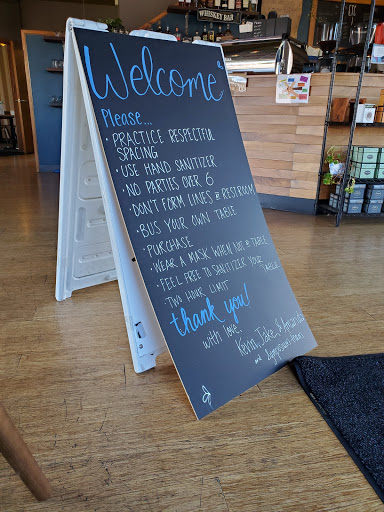 WHISKEY BAR
Welcome
Please...
• PRACTICE RESPECTFUL
SPACING
• USE HAND SANITIZER
• NO PARTIES OVER 6
• DON'T FORM LINES @ RESTROOM
• BUS YOUR OWN TABLE
• PURCHASE
• WEAR A MASK WHEN NOT @ TABLE
• FEEL FREE TO SANITIZER YOUR TABLE
• TWO HOUR LIMIT
thank you!
with love,
Kevin, Jake, &
and